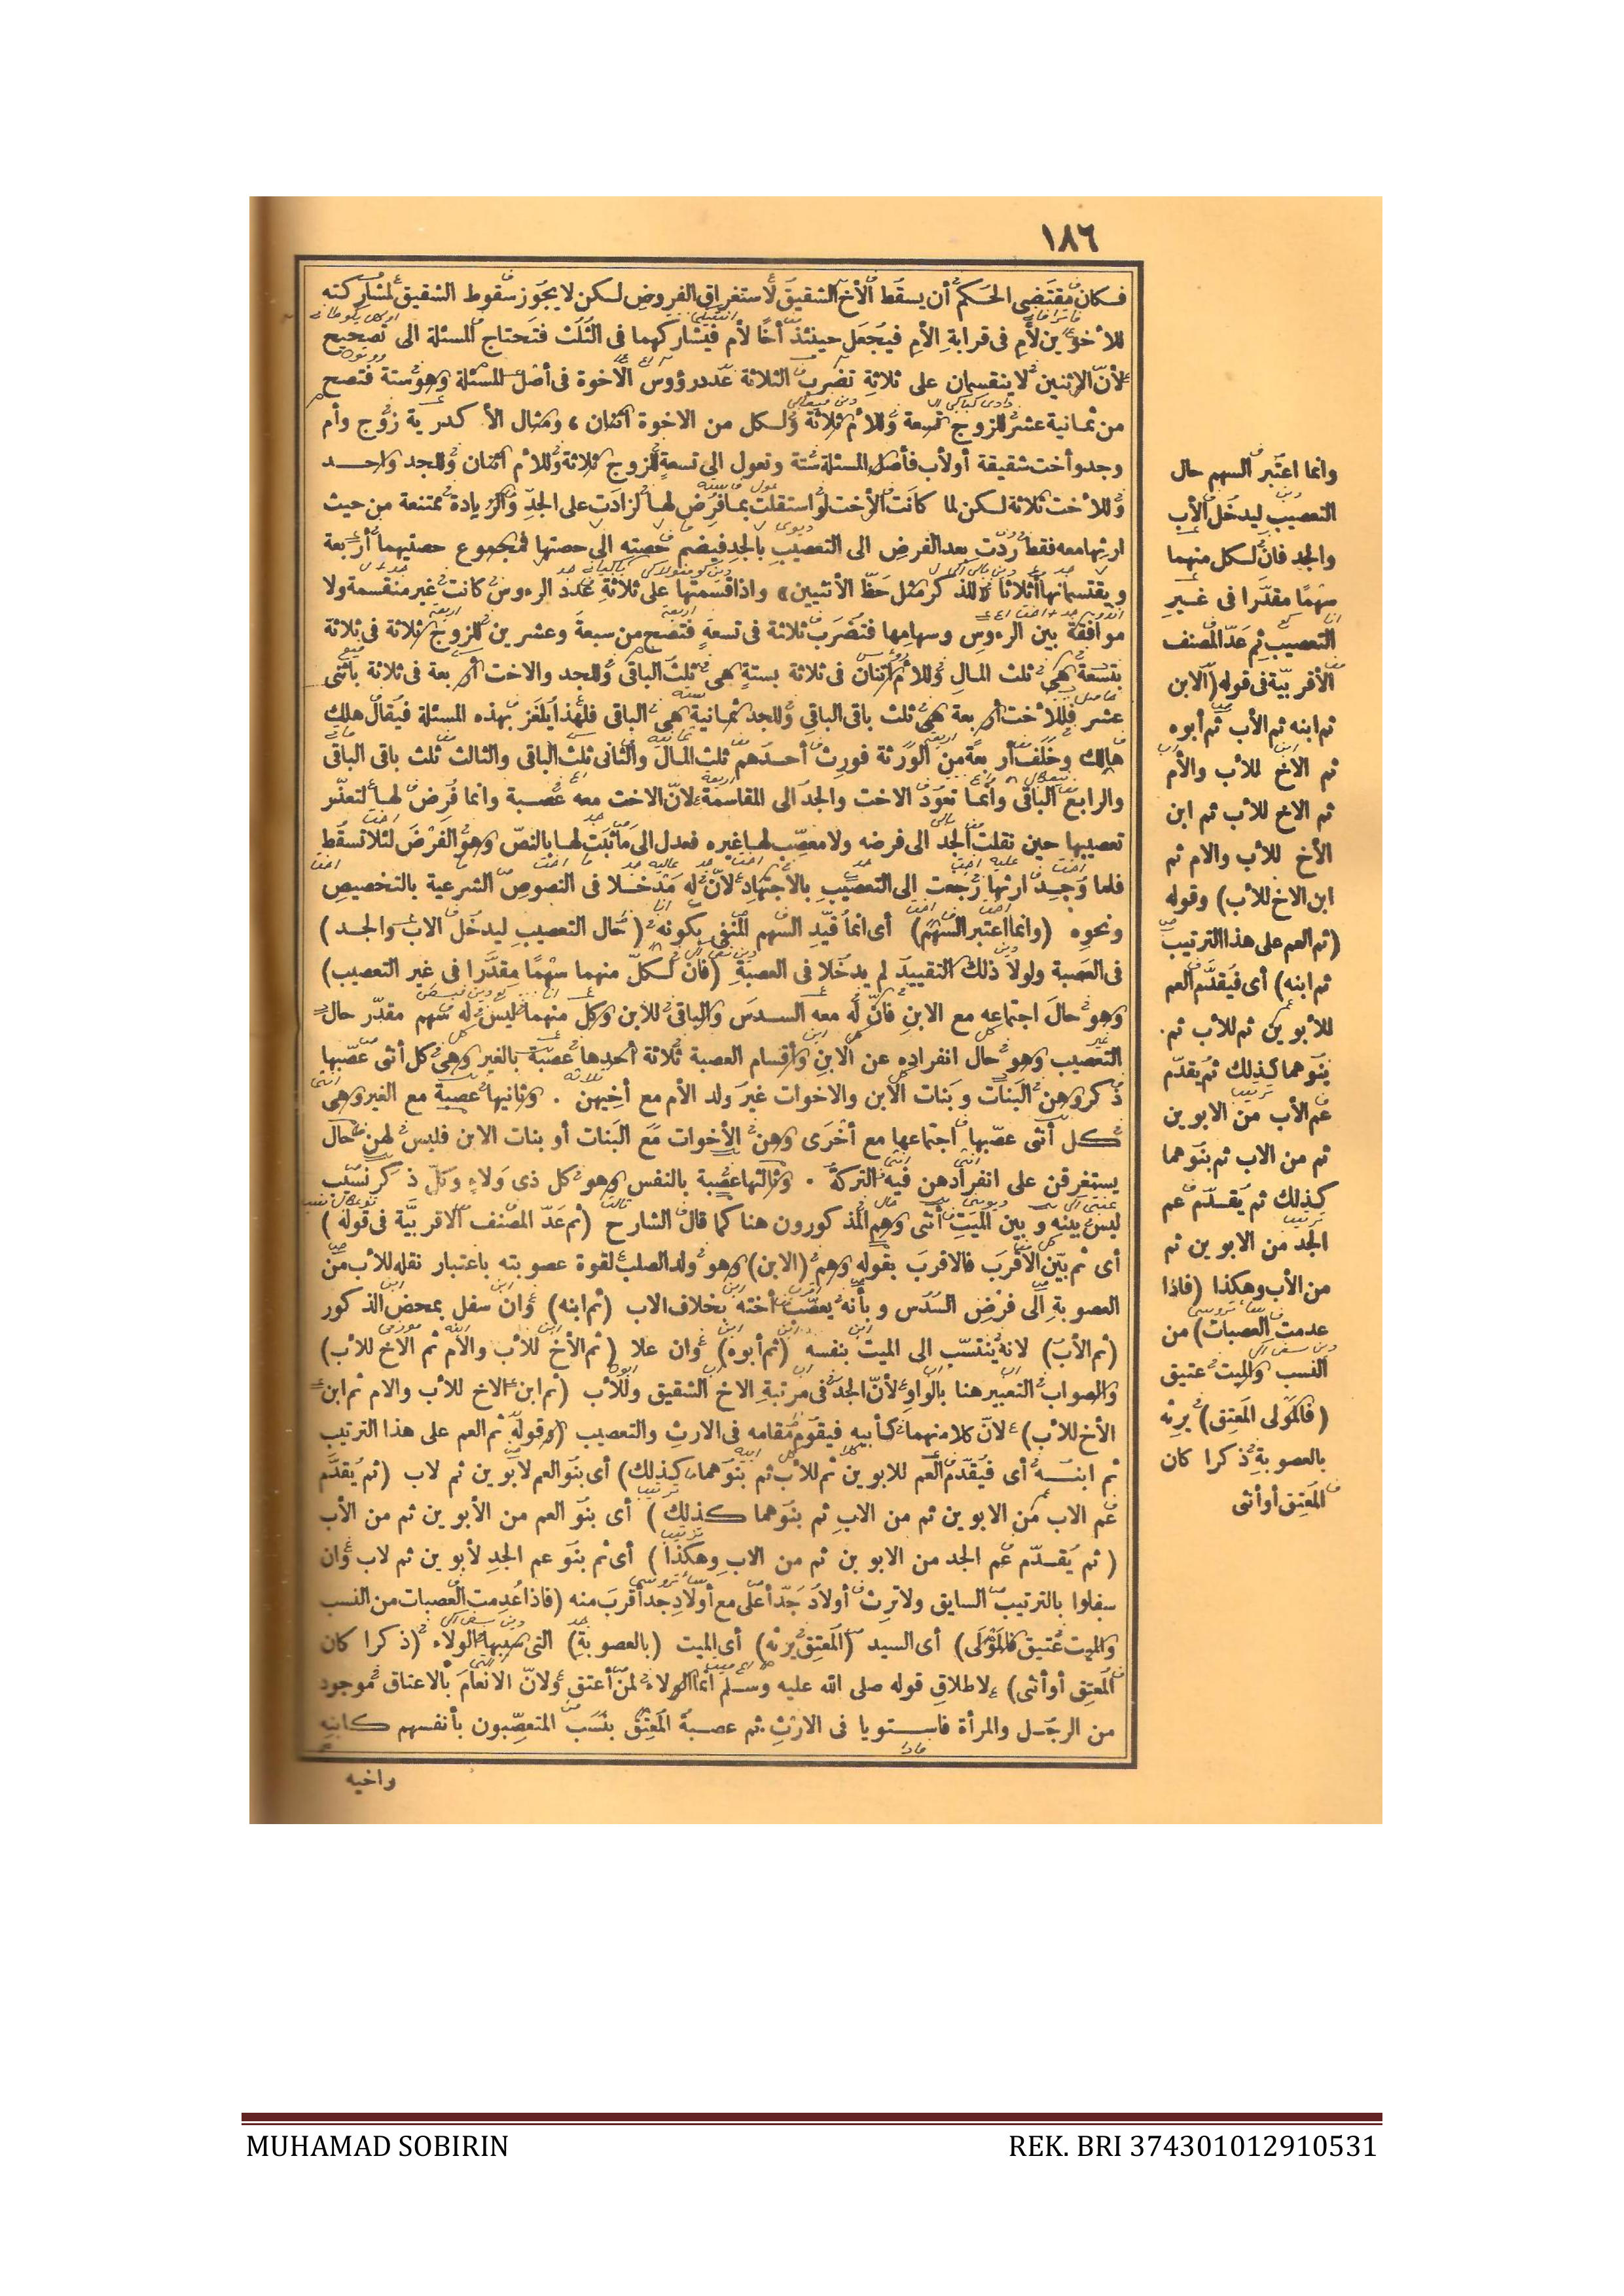 ١٨٦
فكان مقتضى الحكم أن يسقط الأخ الشقيق لاستغراق الفروض لكن لا يجوز سقوط الشقيق لمشاركته
للأخوين لأم فى قرابة الأم فيجعل حينئذ أخا لأم فيشاركهما فى الثلث فتحتاج المسئلة الى تصحيح
لأن الإثنين لا ينقسمان على ثلاثة تضرب الثلاثة عدد رؤوس الاخوة فى أصل المسئلة وهو ستة فتصح
من ثمانية عشر للزوج تسعة وللأم ثلاثة ولكل من الاخوة اثنان ، ومثال الأكدرية زوج وأم
وجد وأخت شقيقة أو لأب فأصل المسئلة ستة وتعول الى تسعة للزوج ثلاثة وللأم اثنان وللجد واحد
وللأخت ثلاثة لكن لما كانت الأخت لو استقلت بما فرض لها لزادت على الجد والزيادة ممتنعة من حيث
ارثها معه فقط ردت بعد الفرض الى التعصيب بالجد فيضم حصته الى حصتها فمجموع حصتيهما أربعة
ويقتسمانها أثلاثا « للذكر مثل حظ الأنثيين » واذا قسمتها على ثلاثة عدد الرءوس كانت غير منقسمة ولا
موافقة بين الرءوس وسهامها فتضرب ثلاثة فى تسعة فتصح من سبعة وعشرين للزوج ثلاثة فى ثلاثة
بتسعة هى ثلث المال وللأم اثنان فى ثلاثة بستة هى ثلث الباقى وللجد والاخت أربعة فى ثلاثة باثنى
عشر فللأخت أربعة هى ثلث باقى الباقى وللجد ثمانية هى الباقى فلهذا يلغز بهذه المسئلة فيقال هلك
هالك وخلف أربعة من الورثة فورث أحدهم ثلث المال والثانى ثلث الباقى والثالث ثلث باقى الباقى
والرابع الباقى وانما تعود الاخت والجد الى المقاسمة لان الاخت معه عصبة وانما فرض لها لتعذر
تعصيبها حين نقلت الجد الى فرضه ولا معصب لها غيره فعدل الى ما ثبت لها بالنص وهو الفرض لئلا تسقط
فلما وجد ارثها رجعت الى التعصيب بالاجتهاد لان له مدخلا فى النصوص الشرعية بالتخصيص
ونحوه (وانما اعتبر السهم) أى انما قيد السهم المنفى بكونه (حال التعصيب ليدخل الاب والجد)
فى العصبة ولولا ذلك التقييد لم يدخلا فى العصبة (فان لكل منهما سهما مقدرا فى غير التعصيب)
وهو حال اجتماعه مع الابن فان له معه السدس والباقى للابن وكل منهما ليس له سهم مقدر حال
التعصيب وهو حال انفراده عن الابن وأقسام العصبة ثلاثة أحدها عصبة بالغير وهى كل أنثى عصبها
ذكر وهن البنات وبنات الابن والاخوات غير ولد الأم مع أخيهن . وثانيها عصبة مع الغير وهى
كل أنثى عصبها اجتماعها مع أخرى وهن الأخوات مع البنات أو بنات الابن فليس لهن حال
يستغرقن على انفرادهن فيه التركة . وثالثها عصبة بالنفس وهو كل ذى ولاء وكل ذكر نسيب
ليس بينه وبين الميت أنثى وهم المذكورون هنا كما قال الشارح (ثم عد المصنف الاقربية فى قوله)
أى ثم بين الاقرب فالاقرب بقوله وهم (الابن) وهو ولد الصلب لقوة عصوبته باعتبار نقله للأب من
العصوبة الى فرض السدس وبأنه يعصب أخته بخلاف الاب (ثم ابنه) وان سفل بمحض الذكور
(ثم الأب) لانه ينتسب الى الميت بنفسه (ثم أبوه) وان علا (ثم الأخ للأب والأم ثم الاخ للأب)
والصواب التعبير هنا بالواو لأن الجد فى مرتبة الاخ الشقيق وللأب (ثم ابن الاخ للأب والام ثم ابن
الأخ للأب) لان كلا منهما كأبيه فيقوم مقامه فى الارث والتعصيب (وقوله ثم العم على هذا الترتيب
ثم ابنه أى فيقدم العم للابوين ثم للأب ثم بنوهما كذلك) أى بنو العم لأبوين ثم لاب (ثم يقدم
عم الاب من الابوين ثم من الاب ثم بنوهما كذلك) أى بنو العم من الأبوين ثم من الأب
(ثم يقدم عم الجد من الابوين ثم من الاب وهكذا) أى ثم بنو عم الجد لأبوين ثم لاب وان
سفلوا بالترتيب السابق ولا ترث أولاد جد أعلى مع أولاد جد أقرب منه (فاذا عدمت العصبات من النسب
والميت عتيق فالمولى) أى السيد (المعتق يرثه) أى الميت (بالعصوبة) التى سببها الولاء (ذكرا كان
المعتق أو أنثى) لاطلاق قوله صلى الله عليه وسلم انما الولاء لمن أعتق ولان الانعام بالاعتاق موجود
من الرجل والمرأة فاستويا فى الارث . ثم عصبة المعتق بنسب المتعصبون بأنفسهم كابنه
وأخيه
وانما اعتبر السهم حال
التعصيب ليدخل الأب
والجد فان لكل منهما
سهما مقدرا فى غير
التعصيب ثم عد المصنف
الأقربية فى قوله (الابن
ثم ابنه ثم الأب ثم أبوه
ثم الاخ للأب والأم
ثم الاخ للأب ثم ابن
الأخ للأب والام ثم
ابن الاخ للأب) وقوله
(ثم العم على هذا الترتيب
ثم ابنه) أى فيقدم العم
للأبوين ثم للأب ثم
بنوهما كذلك ثم يقدم
عم الأب من الابوين
ثم من الاب ثم بنوهما
كذلك ثم يقدم عم
الجد من الابوين ثم
من الأب وهكذا (فاذا
عدمت العصبات) من
النسب والميت عتيق
(فالمولى المعتق) يرثه
بالعصوبة ذكرا كان
المعتق أو أنثى
MUHAMAD SOBIRIN
REK. BRI 374301012910531